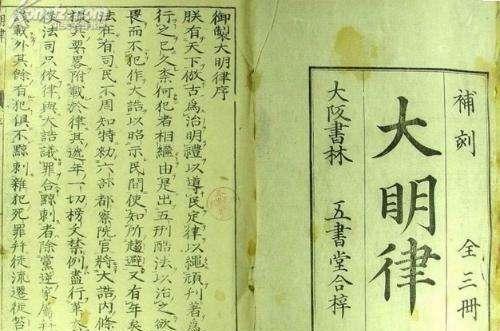 補刻
大明律
全三冊
大阪書林 五書堂合梓
御製大明律序
朕有天下倣古爲治明禮以導民定律以繩頑刊著爲
行之已久柰何犯者相繼由是出五刑酷法以治之欲
畏而不犯作大誥以昭示民間使知所趨避又有年矣
法在有司民不周知特勑六部都察院官將大誥内條
撮其要畧附載於律其遞年一切榜文禁例盡行革
後法司只依律與大誥議罪合黥刺者除黨逆家屬
該載外其餘有犯俱不黥刺雜犯死罪并徒流遷徙笞